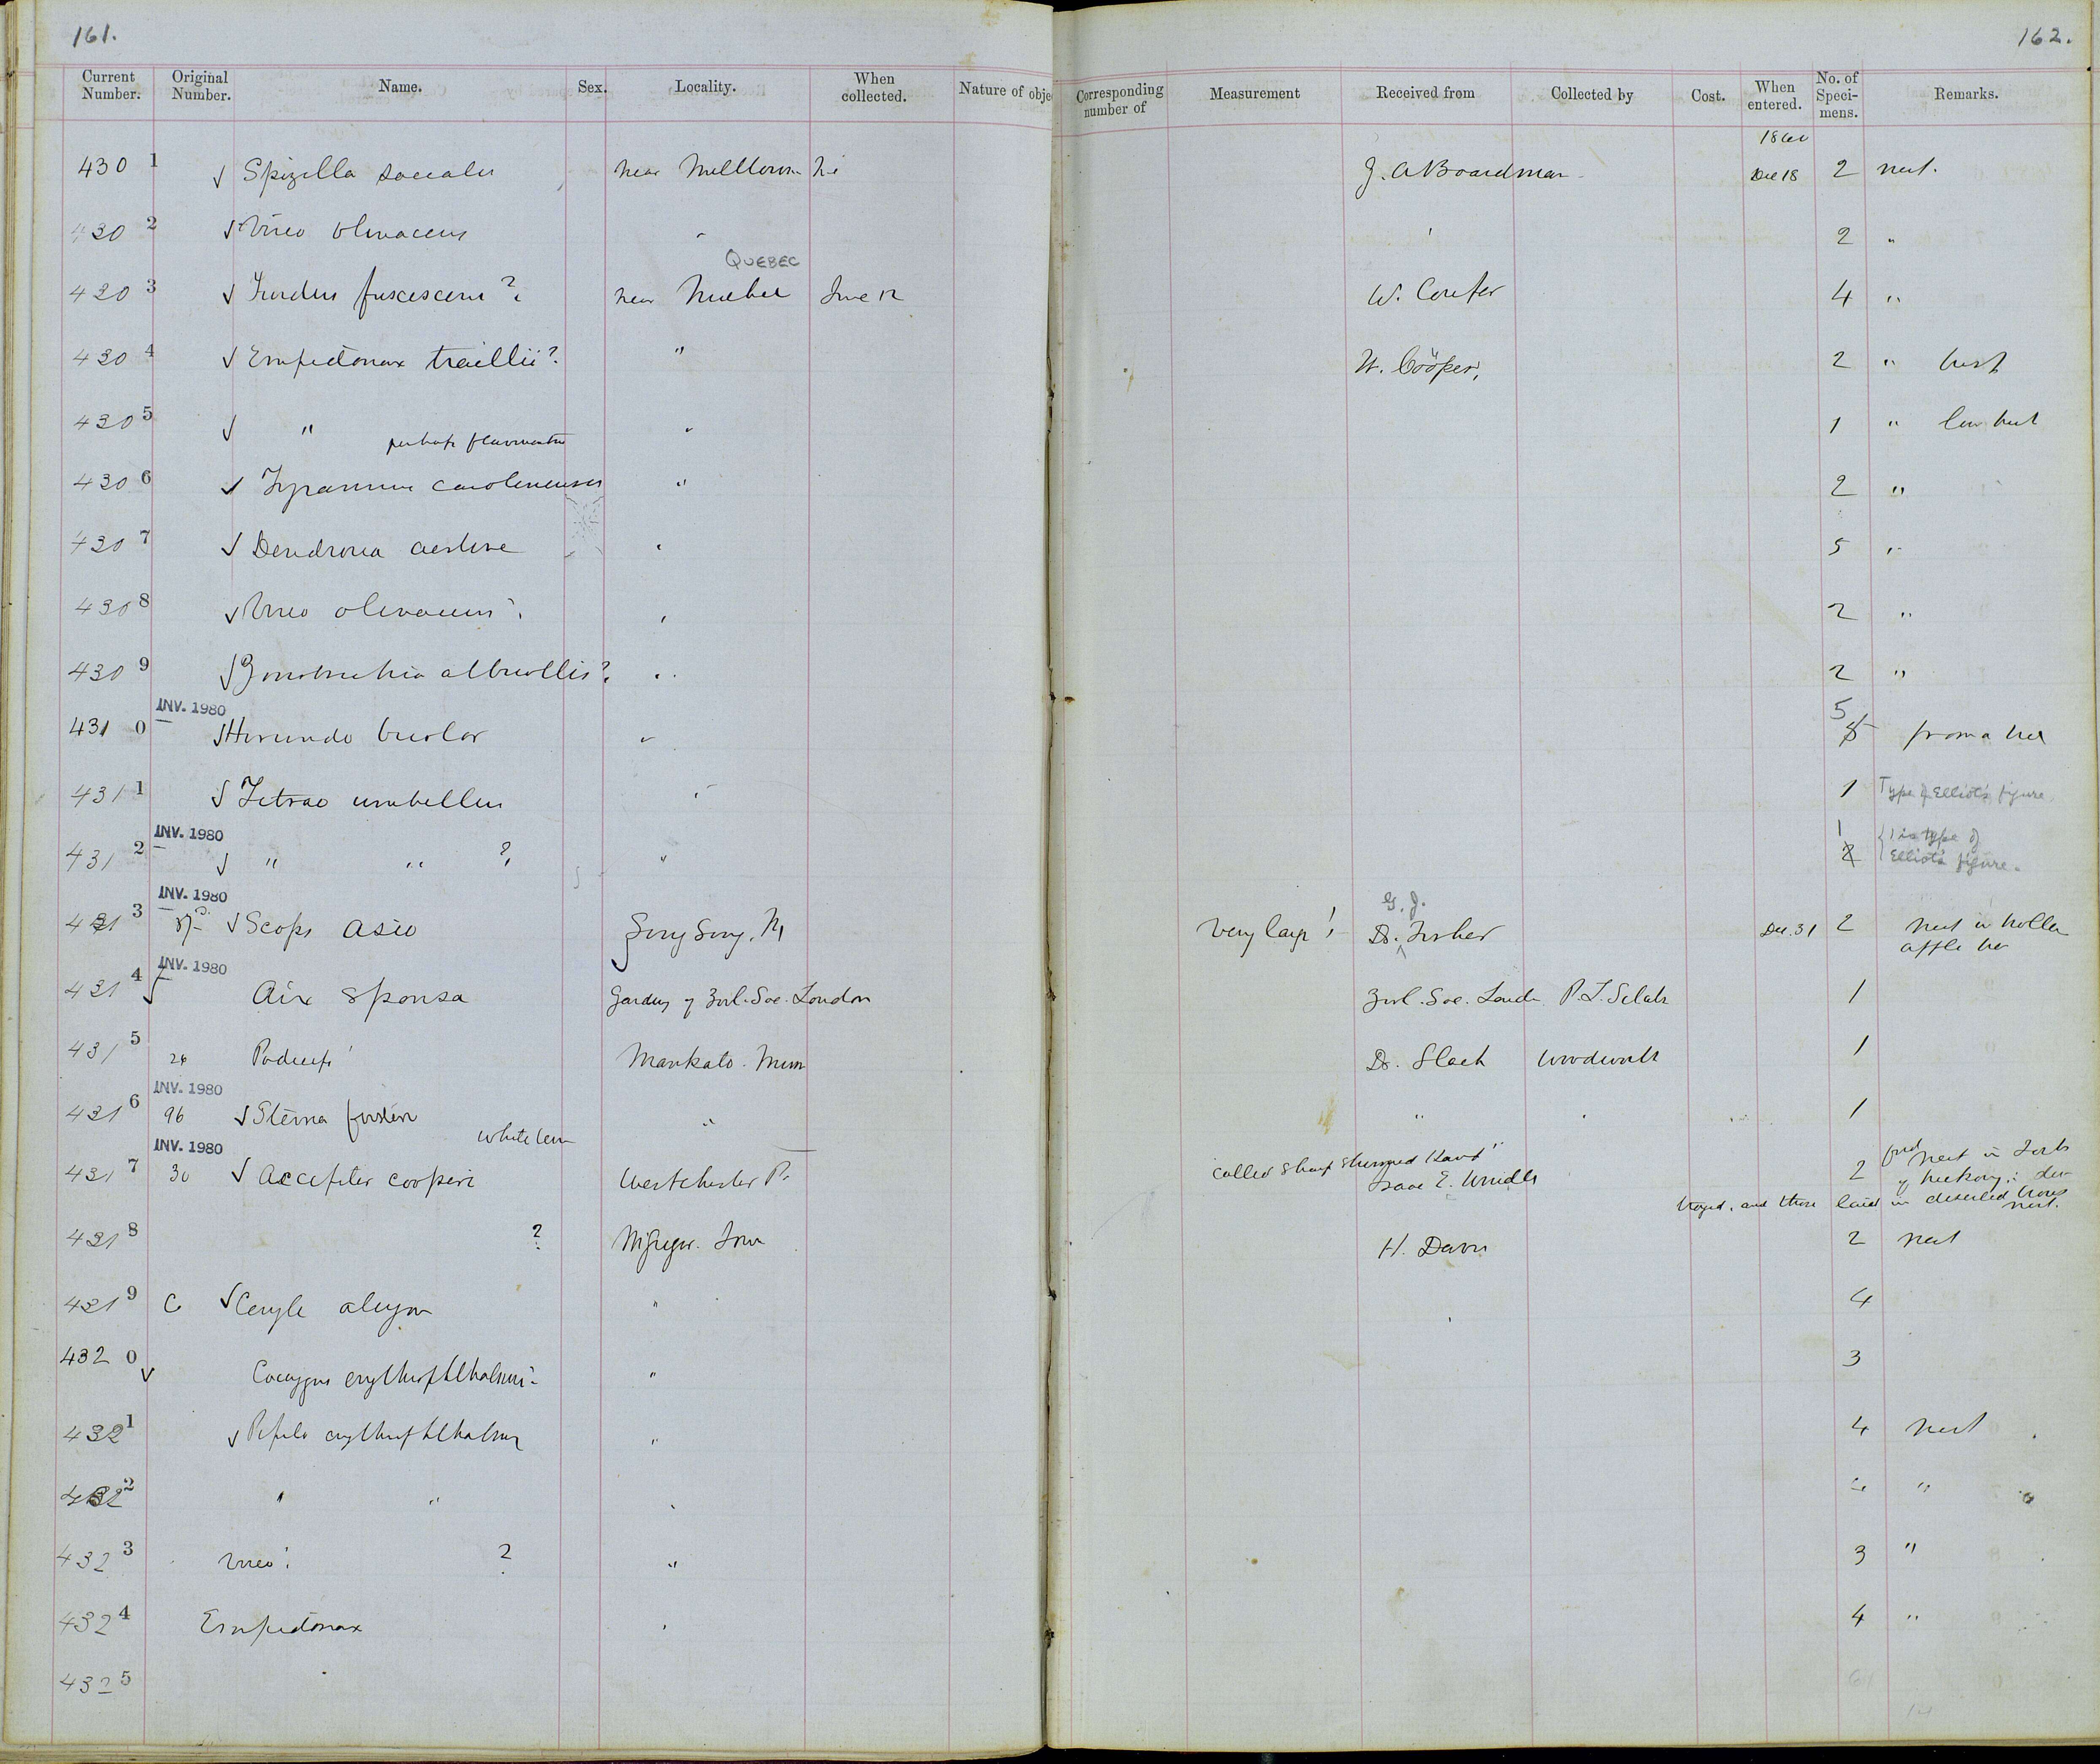 161.
162.
Current Number. Original Number. Name. Sex. Locality. When collected. Nature of obje Corresponding number of Measurement Received from Collected by Cost. When entered. No. of Speci-mens. Remarks.
1860
4301 √ Spizella socialis near Milltown Dec 18 2 nest.
4302 √ Vireo olivaceus 2 "
QUEBEC
4303 √ Turdus fuscescens ? near June 12 W. Couper 4 "
4304 √ Empidonax traillii ? " W. Cooper, 2 "
4305 √ " perhaps flaviventris " 1 "
4306 √ Tyrannus carolinensis " 2 "
4307 √ Dendroica aestiva " 5 "
4308 √ Vireo olivaceus ? " 2 "
4309 √ Zonotrichia albicollis ? " 2 "
INV. 1980
5
4310 √ Hirundo bicolor " 5 from a
4311 √ Tetrao umbellus " 1 Type of Elliot's figure.
INV. 1980
4312 √ " " ? " 1 2 { 1 is type of
Elliot's figure.
INV. 1980
G. J.
4313 √ Scops asio Sing Sing, N Very large ! Dr. Fisher Dec. 31 2 Nest in hollow
apple tree
INV. 1980
4314 √ Aix sponsa Gardens of Zool. Soc. London Zool. Soc. London P. L. Sclater 1
4315 26 Podiceps Mankato. Minn Dr. Slack 1
INV. 1980
4316 96 √ Sterna forsteri " " 1
INV. 1980
white
4317 30 √ Accipiter cooperi Westchester Pa called sharp shinned Hawk" 2 nest in
hickory; des-
troyed, and these laid in deserted
nest.
4318 ? McGregor. Iowa H. Davis 2 nest
4319 C √ Ceryle alcyon " 4
4320 √ Coccygus erythrophthalmus " 3
4321 √ Pipilo erythrophthalmus " 4 nest
4322 " " " "
4323 Vireo ? " 3 "
4324 Empidonax " 4 "
4325